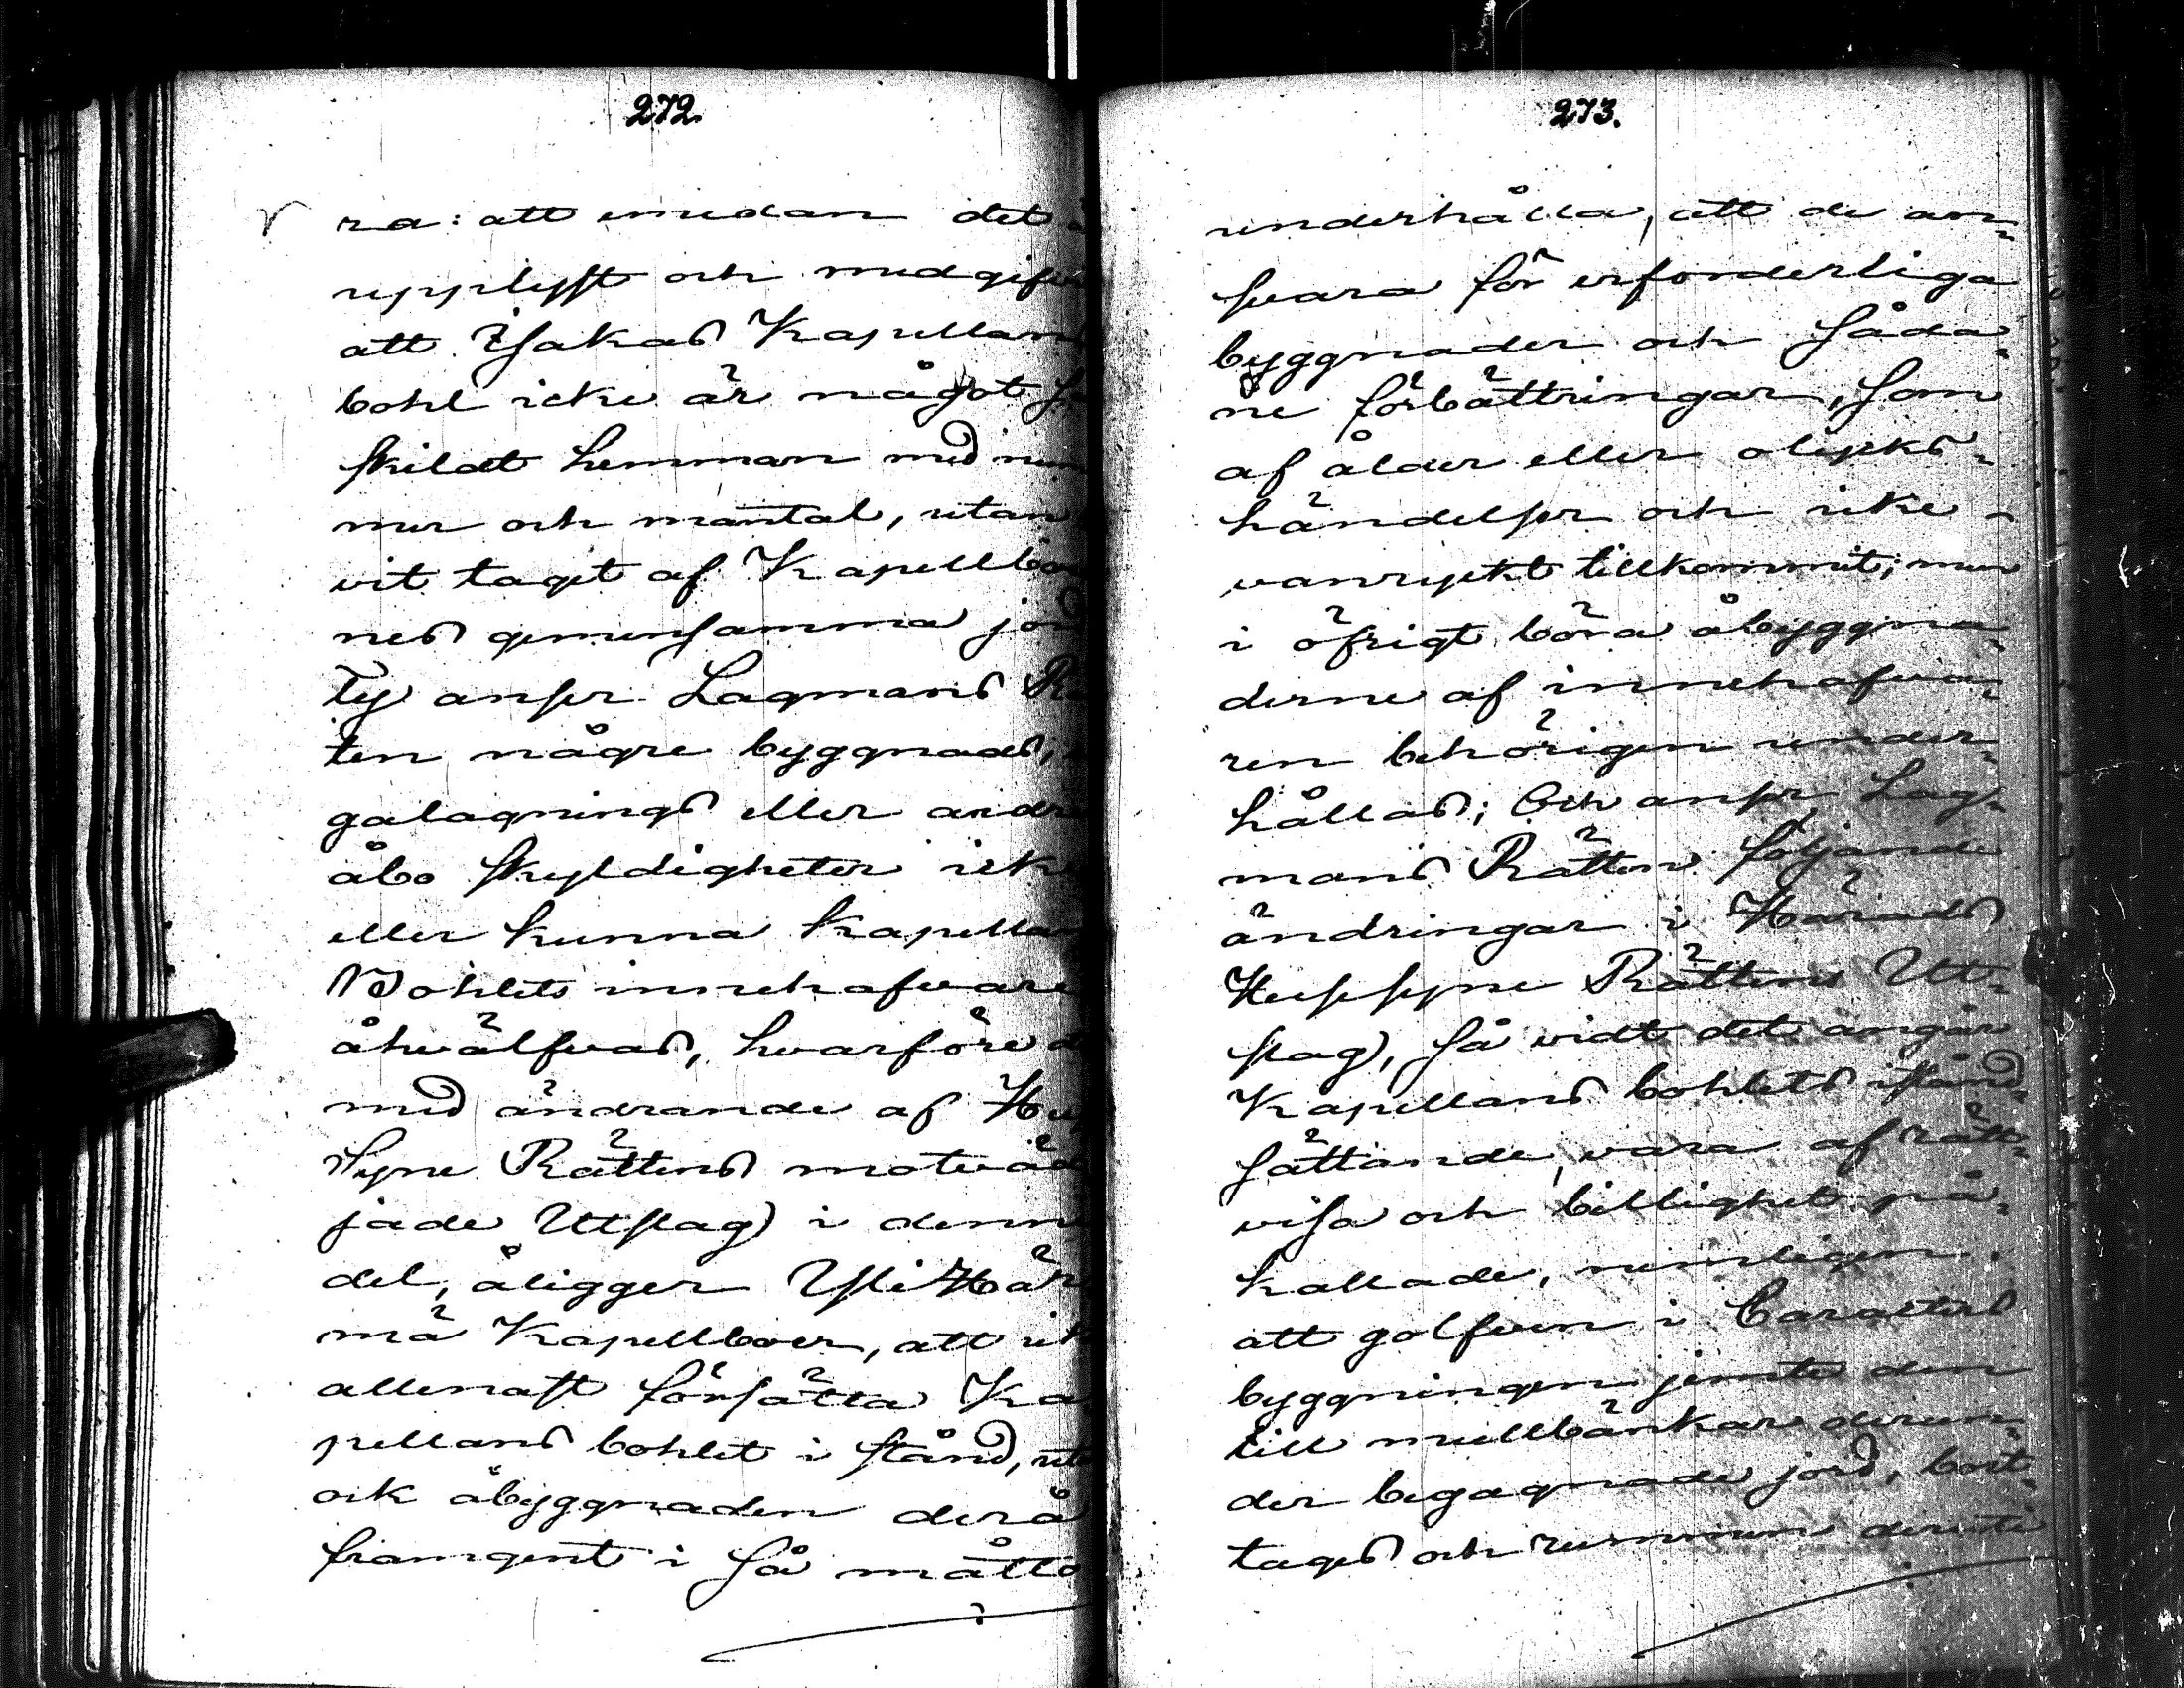 272.
ra: att emedan det
upplyst och medgifv
att Isakas Kapellans
bohl icke är något
skildt hemman med num
mer och mantal, utan
vit taget af Kapellboer
nes gemensamma jord
Ty anser Lagmans Rä
ten någre byggnads,
galagnings eller andre
åbo skyldigheter icke
eller kunna Kapellans
Bohlets innehafvare
åhvälfvas, hvarföre
med ändrande af Hus
Syne Rättens motväd
jade Utslag i denne
del, åligger Yli Här
mä Kapellboer, att ick
allenast försätta Ka
pellans bohlet i stånd, utan
ock åbyggnaden derå
framgent i så måtto
273.
underhålla, att de an¬
svara för erforderliga
byggnader och såda¬
ne förbättringar, som
af ålder eller olycks¬
händelser och icke
vanryckt tillkommit; men
i öfrigt böra åbyggna¬
derne af innehafva¬
ren behörigen under¬
hållas; Och anser Lag¬
mans Rätten följande
ändringar i Härads
Hussyne Rättens Ut¬
slag, så vidt det angår
Kapellans bohlets istånd¬
sättande, vara af rätt¬
visa och billighet på¬
kallade, nemligen:
att golfven i
byggningen jemte den
till mullbänkar derun
der begagnade jord, bort¬
tages och rummen